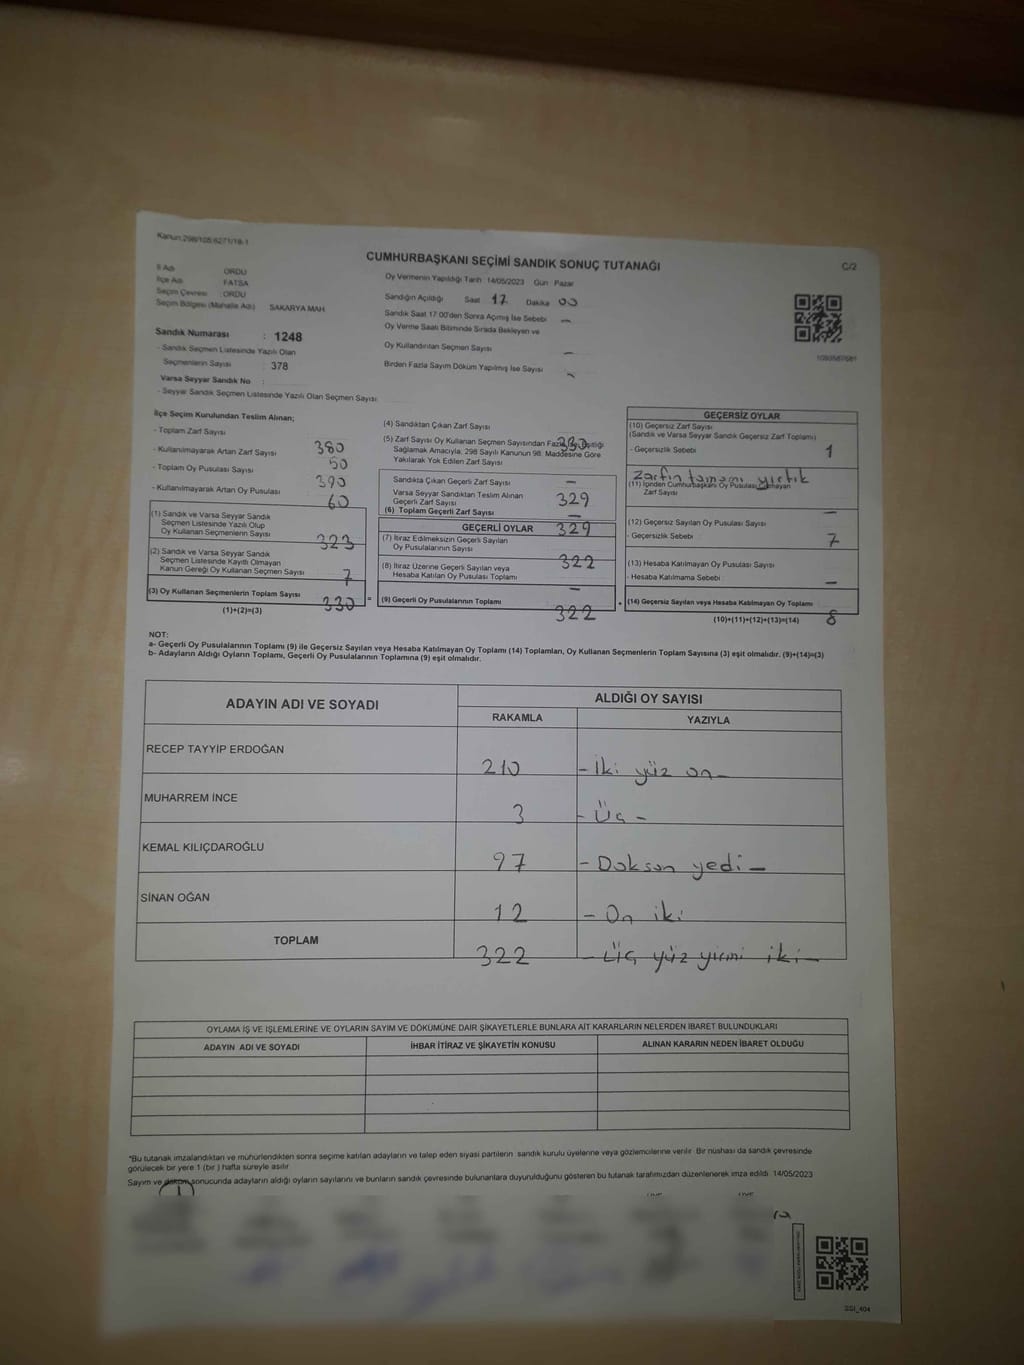 Kanun:298/105;6271/18-1
CUMHURBAŞKANI SEÇİMİ SANDIK SONUÇ TUTANAĞI
C/2
İl Adı ORDU
İlçe Adı FATSA
Seçim Çevresi : ORDU
Seçim Bölgesi (Mahalle Adı) SAKARYA MAH
Oy Vermenin Yapıldığı Tarih 14/05/2023 Gün Pazar
Sandığın Açıldığı Saat 17 Dakika 00
Sandık Saat 17:00'den Sonra Açılmış İse Sebebi —
Oy Verme Saati Bitiminde Sırada Bekleyen ve
Oy Kullandırılan Seçmen Sayısı —
Birden Fazla Sayım Döküm Yapılmış İse Sayısı -
Sandık Numarası : 1248
- Sandık Seçmen Listesinde Yazılı Olan
Seçmenlerin Sayısı : 378
Varsa Seyyar Sandık No :
- Seyyar Sandık Seçmen Listesinde Yazılı Olan Seçmen Sayısı:
İlçe Seçim Kurulundan Teslim Alınan;
- Toplam Zarf Sayısı 380
- Kullanılmayarak Artan Zarf Sayısı 50
- Toplam Oy Pusulası Sayısı 390
- Kullanılmayarak Artan Oy Pusulası 60
(1) Sandık ve Varsa Seyyar Sandık
Seçmen Listesinde Yazılı Olup
Oy Kullanan Seçmenlerin Sayısı 323
(2) Sandık ve Varsa Seyyar Sandık
Seçmen Listesinde Kayıtlı Olmayan
Kanun Gereği Oy Kullanan Seçmen Sayısı 7
(3) Oy Kullanan Seçmenlerin Toplam Sayısı 330
(1)+(2)=(3)
=
(4) Sandıktan Çıkan Zarf Sayısı 330
(5) Zarf Sayısı Oy Kullanan Seçmen Sayısından Fazla İse Eşitliği
Sağlamak Amacıyla, 298 Sayılı Kanunun 98. Maddesine Göre
Yakılarak Yok Edilen Zarf Sayısı —
Sandıkta Çıkan Geçerli Zarf Sayısı 329
Varsa Seyyar Sandıktan Teslim Alınan
Geçerli Zarf Sayısı —
(6) Toplam Geçerli Zarf Sayısı 329
GEÇERLİ OYLAR
(7) İtiraz Edilmeksizin Geçerli Sayılan
Oy Pusulalarının Sayısı 322
(8) İtiraz Üzerine Geçerli Sayılan veya
Hesaba Katılan Oy Pusulası Toplamı —
(9) Geçerli Oy Pusulalarının Toplamı 322
+
GEÇERSİZ OYLAR
(10) Geçersiz Zarf Sayısı
(Sandık ve Varsa Seyyar Sandık Geçersiz Zarf Toplamı) 1
- Geçersizlik Sebebi :
Zarfın tamamı yırtık
(11) İçinden Cumhurbaşkanı Oy Pusulası Çıkmayan
Zarf Sayısı —
(12) Geçersiz Sayılan Oy Pusulası Sayısı 7
- Geçersizlik Sebebi :
(13) Hesaba Katılmayan Oy Pusulası Sayısı —
- Hesaba Katılmama Sebebi :
(14) Geçersiz Sayılan veya Hesaba Katılmayan Oy Toplamı 8
(10)+(11)+(12)+(13)=(14)
NOT:
a- Geçerli Oy Pusulalarının Toplamı (9) ile Geçersiz Sayılan veya Hesaba Katılmayan Oy Toplamı (14) Toplamları, Oy Kullanan Seçmenlerin Toplam Sayısına (3) eşit olmalıdır. (9)+(14)=(3)
b- Adayların Aldığı Oyların Toplamı, Geçerli Oy Pusulalarının Toplamına (9) eşit olmalıdır.
ADAYIN ADI VE SOYADI
ALDIĞI OY SAYISI
RAKAMLA YAZIYLA
RECEP TAYYİP ERDOĞAN 210 - İki yüz on -
MUHARREM İNCE 3 - Üç -
KEMAL KILIÇDAROĞLU 97 - Doksan yedi -
SİNAN OĞAN 12 - On iki
TOPLAM 322 - Üç yüz yirmi iki -
OYLAMA İŞ VE İŞLEMLERİNE VE OYLARIN SAYIM VE DÖKÜMÜNE DAİR ŞİKAYETLERLE BUNLARA AİT KARARLARIN NELERDEN İBARET BULUNDUKLARI
ADAYIN ADI VE SOYADI İHBAR İTİRAZ VE ŞİKAYETİN KONUSU ALINAN KARARIN NEDEN İBARET OLDUĞU
*Bu tutanak imzalandıktan ve mühürlendikten sonra seçime katılan adayların ve talep eden siyasi partilerin sandık kurulu üyelerine veya gözlemcilerine verilir. Bir nüshası da sandık çevresinde
görülecek bir yere 1 (bir ) hafta süreyle asılır.
Sayım ve döküm sonucunda adayların aldığı oyların sayılarını ve bunların sandık çevresinde bulunanlara duyurulduğunu gösteren bu tutanak tarafımızdan düzenlenerek imza edildi. 14/05/2023
SSI_404